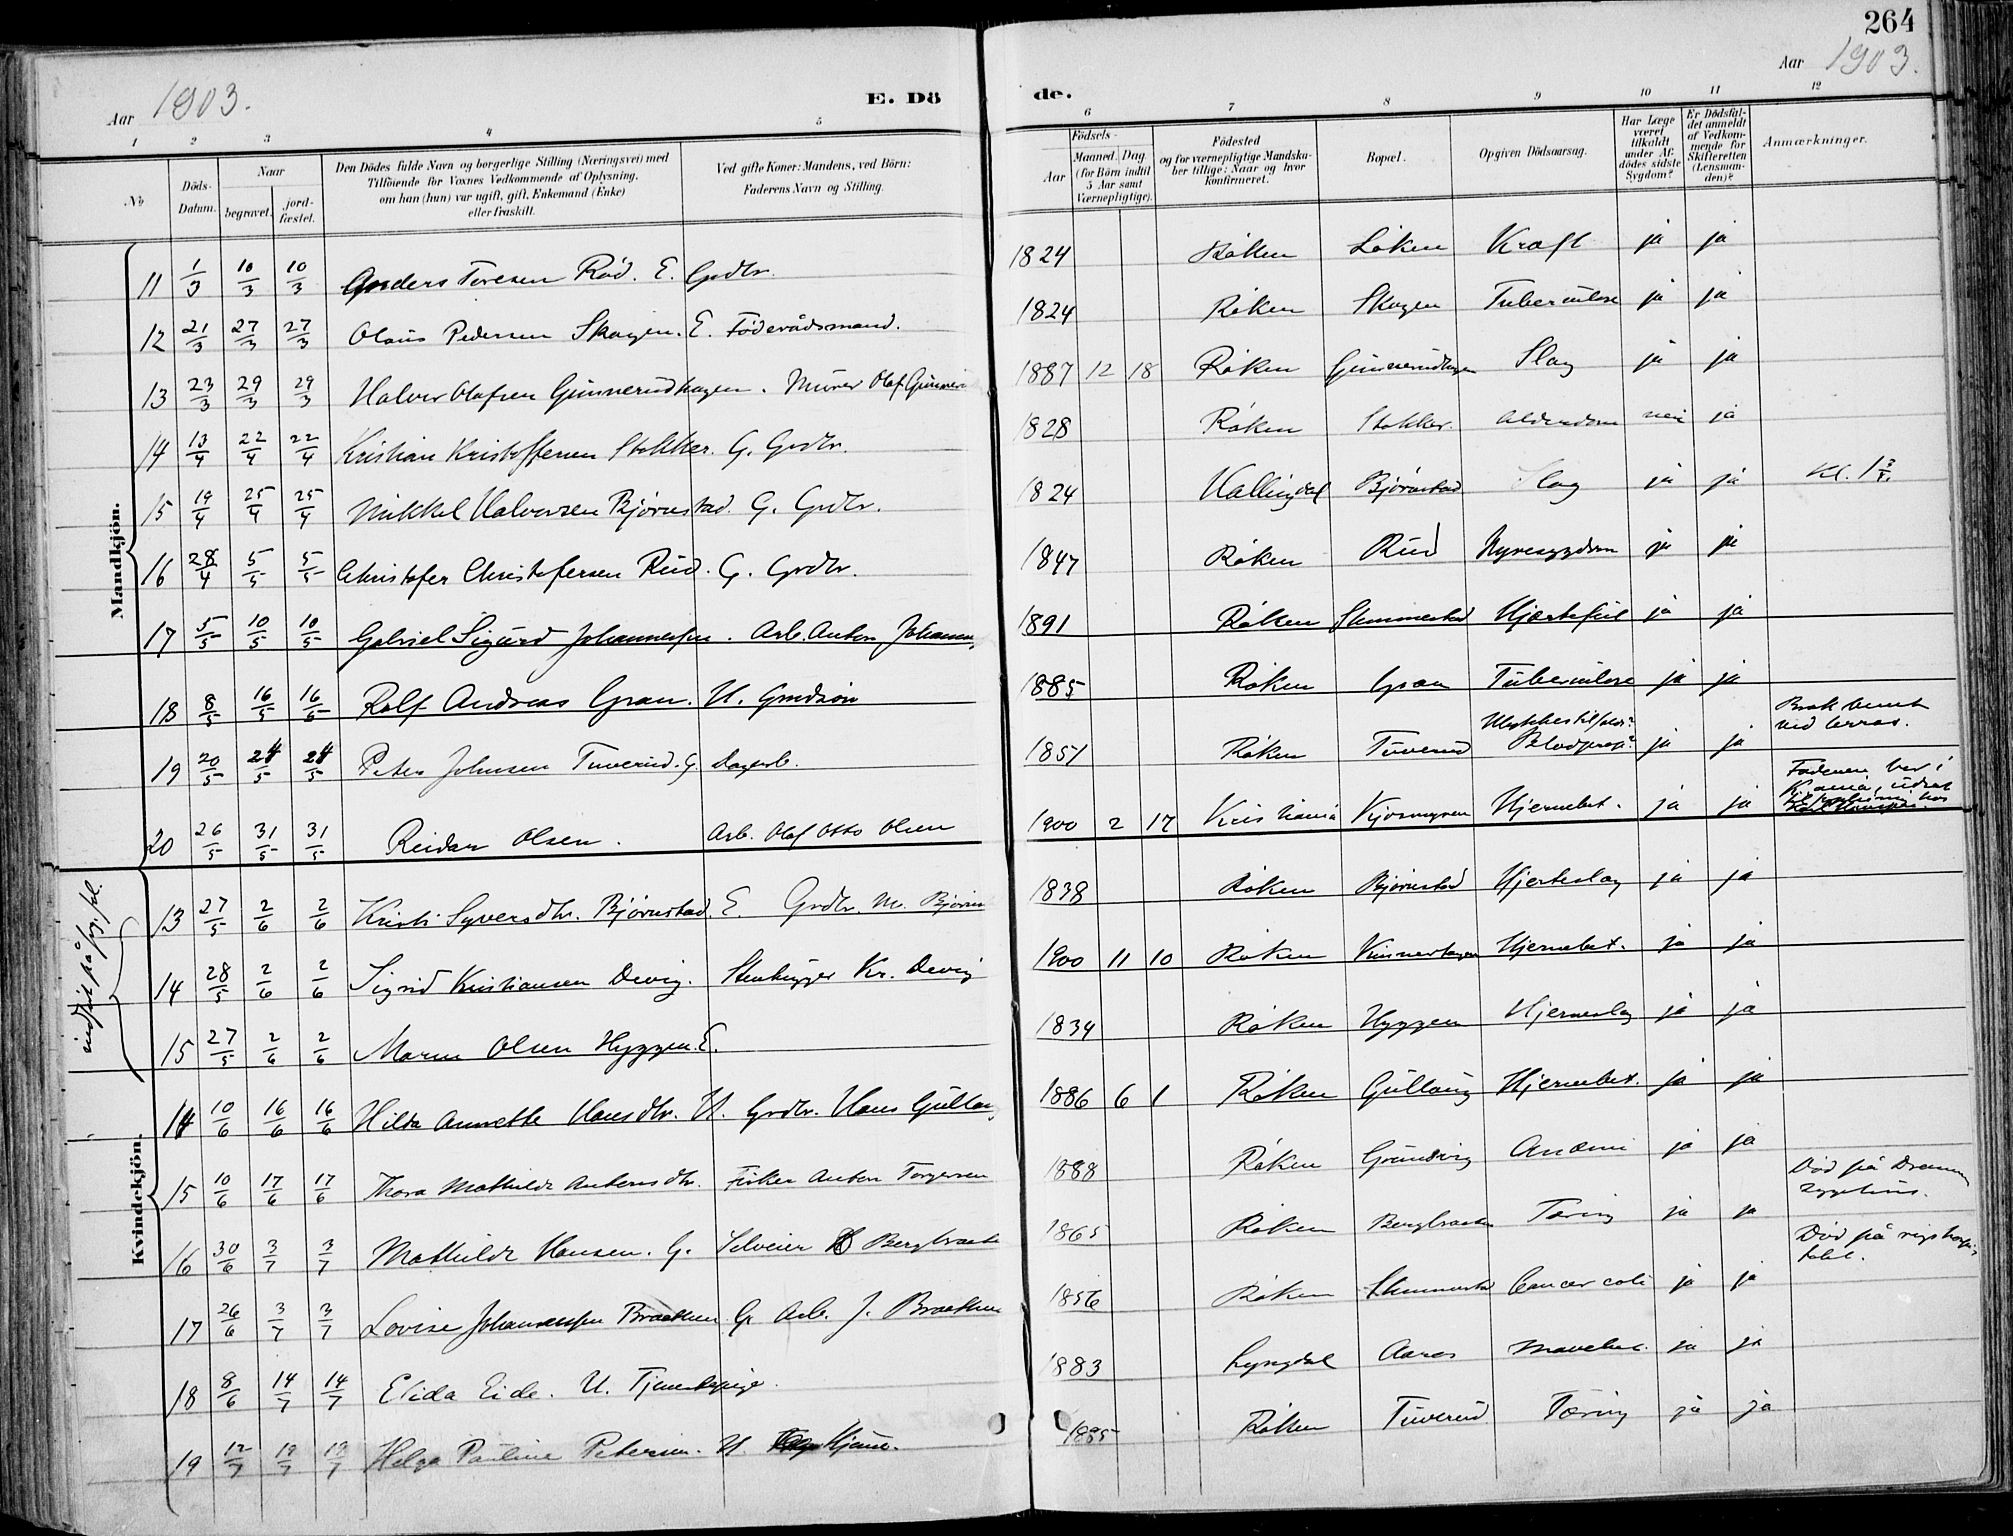 264
Aar 1903.
E. Döde.
Aar 1903.
1 2 3 4 5 6 7 8 9 10 11 12
No
Döds-Datum.
Naar begravet. jordfæstet.
Den Dödes fulde Navn og borgerlige Stilling (Næringsvei) med Tilföiende for Voxnes Vedkommende af Oplysning, om han (hun) var ugift, gift, Enkemand (Enke) eller fraskilt.
Ved gifte Koner: Mandens, ved Börn: Faderens Navn og Stilling.
Födsels-
Aar
Maaned. Dag (for Börn indtil 5 Aar samt Værnepligtige).
Födested og for værnepligtige Mandskaber tillige: Naar og hvor konfirmeret.
Bopæl.
Opgiven Dödsaarsag.
Har Læge været tilkaldt under Afdödes sidste Sygdom?
Er Dödsfaldet anmeldt af Vedkommende for Skifteretten (Lensmanden)?
Anmærkninger.
Mandkjön.
11 1/3 10/3 10/3 Anders Toresen Rød. E. Grdbr. 1824 Røken Løken Kræft ja ja
12 21/3 27/3 27/3 Olaus Pedersen Skogen. E. Föderådsmand. 1824 Røken Skogen Tuberculose ja ja
13 23/3 29/3 29/3 Halvor Olafsen Gunnerudhagen. Murer Olaf Gunneru 1887 12 18 Røken Gunnerudhagen Slag ja ja
14 13/4 22/4 22/4 Kristian Kristoffersen Stokker. G. Grdbr. 1828 Røken Stokker. Alderdom nei ja
15 19/4 25/4 25/4 Mikkel Halvorsen Bjørnstad G. Grdbr. 1824 Hallingdal Bjørnstad Slag ja ja
16 28/4 5/5 5/5 Christofer Christofersen Rud. G. Grdbr. 1847 Røken Rud Nyresygdom ja ja
17 5/5 10/5 10/5 Gabriel Sigurd Johannessen. Arb. Anton Johannes. 1891 Røken Slemmestad Hjertefeil ja ja
18 8/5 16/5 16/5 Rolf Andreas Gran. U. Grdsøn 1885 Røken Gran Tuberculose ja ja
19 20/5 24/5 24/5 Peter Johnsen Tuverud. G. Dagarb. 1851 Røken Tuverud ja ja
20 26/5 31/5 31/5 Reidar Olsen. Arb. Olaf Otto Olsen 1900 2 17 Kristiania Kjosmyren Hjernebet. ja ja Faderen bor i
Kvindekjön.
13 27/5 2/6 2/6 Kristi Syversdtr. Bjørnstad. E. Grdbr. M. Bjørns 1838 Røken Bjørnstad Hjerteslag ja ja
14 28/5 2/6 2/6 Sigrid Kristiansen Devig. Stenhugger Kr. Devig 1900 11 10 Røken Hjernebet. ja ja
15 27/5 2/6 2/6 Maren Olsen Hyggen. E. 1834 Røken Hyggen Hjerneslag ja ja
14 10/6 16/6 16/6 Hilda Annette Hansdtr. U. Grdbr. Hans Gullaug 1886 6 1 Røken Gullaug Hjernebet. ja ja
15 10/6 17/6 17/6 Thora Mathilde Antonsdtr. Fisker Anton Torgersen 1888 Røken Grundvig Anæmi ja ja
16 30/6 3/7 3/7 Mathilde Hansen. G. Selveier Bergbraaten 1865 Røken Bergbraaten Tæring ja ja Död på Drammen sygehus.
17 26/6 3/7 3/7 Lovise Johannessen Braathen G. Arb. J. Braathen 1856 Røken Slemmestad Cancer coli ja ja Död på rigshospitalet.
18 8/6 14/7 14/7 Elida Eide. U. Tjenestepige. 1883 Lyngdal Aaros Mavebet. ja ja
19 12/7 19/7 19/7 Helga Pauline Petersen. U. Hjem. 1885 Røken Tuverud Tæring ja ja